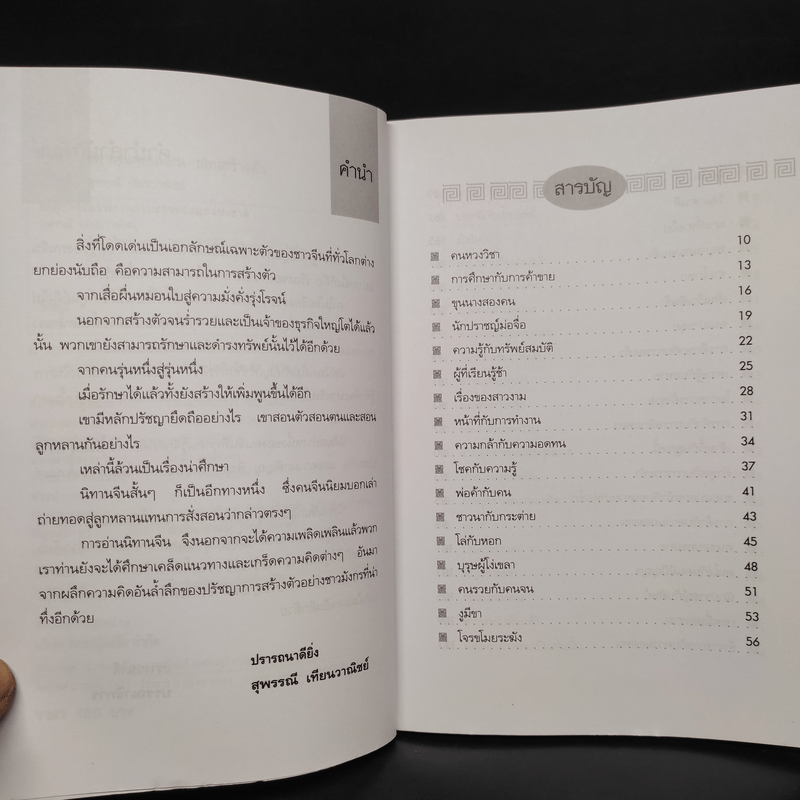 คำนำ
สิ่งที่โดดเด่นเป็นเอกลักษณ์เฉพาะตัวของชาวจีนที่ทั่วโลกต่าง
ยกย่องนับถือ คือความสามารถในการสร้างตัว
จากเสื่อผืนหมอนใบสู่ความมั่งคั่งรุ่งโรจน์
นอกจากสร้างตัวจนร่ำรวยและเป็นเจ้าของธุรกิจใหญ่โตได้แล้ว
นั้น พวกเขายังสามารถรักษาและดำรงทรัพย์นั้นไว้ได้อีกด้วย
จากคนรุ่นหนึ่งสู่รุ่นหนึ่ง
เมื่อรักษาได้แล้วทั้งยังสร้างให้เพิ่มพูนขึ้นได้อีก
เขามีหลักปรัชญายึดถืออย่างไร เขาสอนตัวสอนตนและสอน
ลูกหลานกันอย่างไร
เหล่านี้ล้วนเป็นเรื่องน่าศึกษา
นิทานจีนสั้นๆ ก็เป็นอีกทางหนึ่ง ซึ่งคนจีนนิยมบอกเล่า
ถ่ายทอดสู่ลูกหลานแทนการสั่งสอนว่ากล่าวตรงๆ
การอ่านนิทานจีน จึงนอกจากจะได้ความเพลิดเพลินแล้วพวก
เราท่านยังจะได้ศึกษาเคล็ดแนวทางและเกร็ดความคิดต่างๆ อันมา
จากผลึกความคิดอันล้ำลึกของปรัชญาการสร้างตัวอย่างชาวมังกรที่น่า
ทึ่งอีกด้วย
ปรารถนาดียิ่ง
สุพรรณี เทียนวาณิชย์
สารบัญ
คนหวงวิชา 10
การศึกษากับการค้าขาย 13
ขุนนางสองคน 16
นักปราชญ์ม่อจื่อ 19
ความรู้กับทรัพย์สมบัติ 22
ผู้ที่เรียนรู้ช้า 25
เรื่องของสาวงาม 28
หน้าที่กับการทำงาน 31
ความกล้ากับความอดทน 34
โชคกับความรู้ 37
พ่อค้ากับคน 41
ชาวนากับกระต่าย 43
โล่กับหอก 45
บุรุษผู้โง่เขลา 48
คนรวยกับคนจน 51
งูมีขา 53
โจรขโมยระฆัง 56